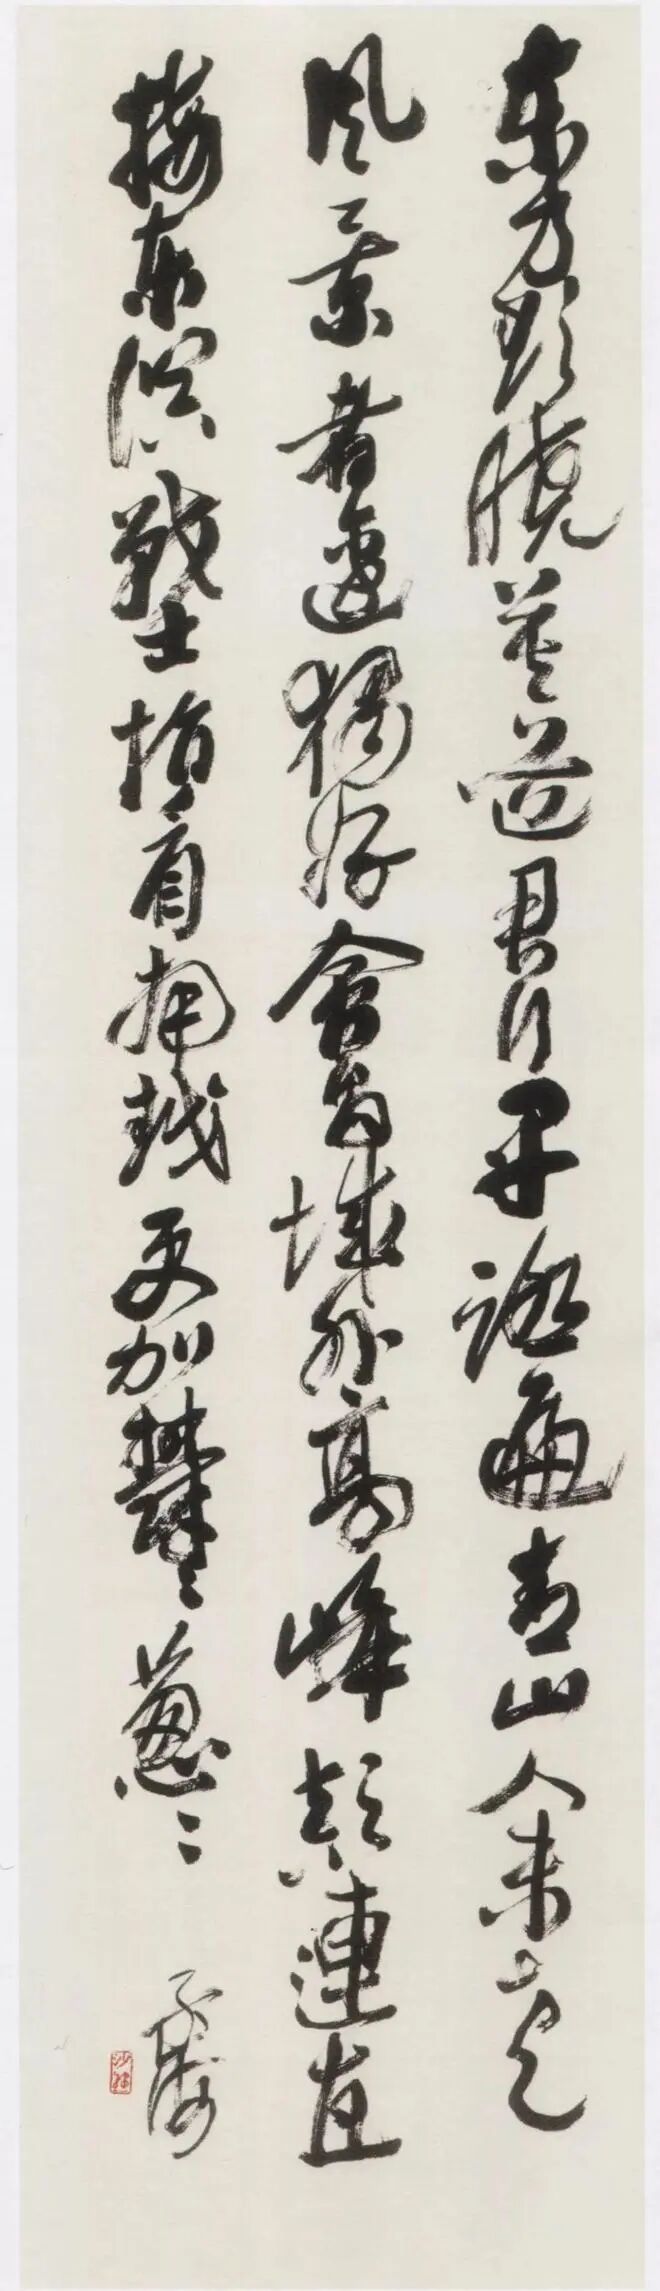 東方欲曉莫道君行早踏遍青山人未老
風景者邊獨好會昌城外高峰顛連直
接東溟戰士指看南越更加鬱〻葱〻
孟海